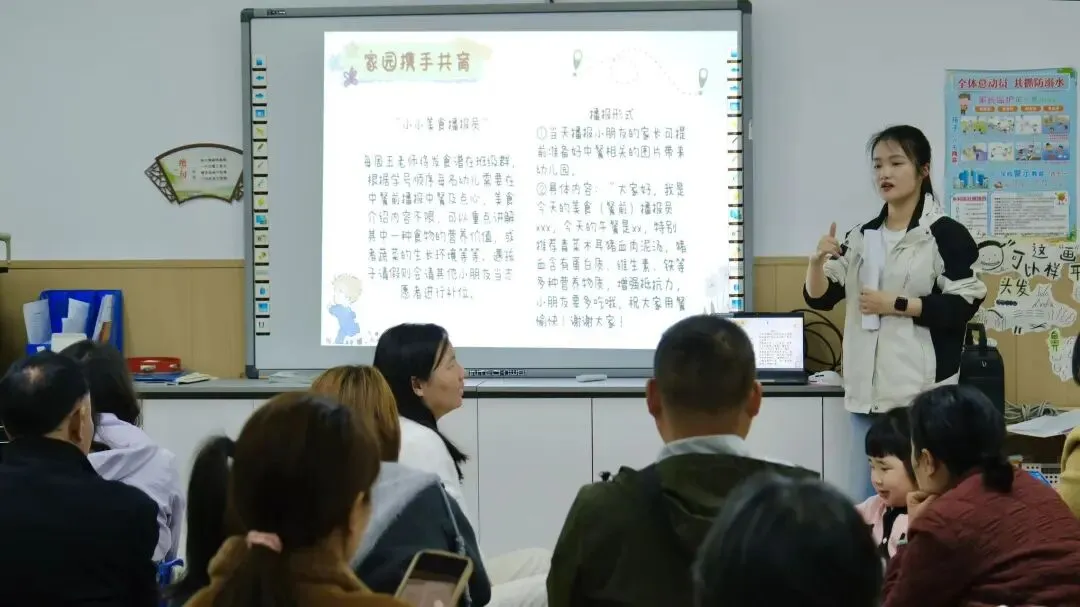 家园携手共育
“小小美食播报员”
每周五老师将发食谱在班级群，
根据学号顺序每名幼儿需要在
中餐前播报中餐及点心。美食
介绍内容不限，可以重点讲解
其中一种食物的营养价值，或
者蔬菜的生长环境等等。遇孩
子请假则会请其他小朋友当志
愿者进行补位。
播报形式
①当天播报小朋友的家长可提
前准备好中餐相关的图片带来
幼儿园。
②具体内容：“大家好，我是
今天的美食（餐前）播报员
xxx，今天的午餐是xx，特别
推荐青菜木耳猪血肉泥汤，猪
血含有蛋白质、维生素、铁等
多种营养物质，增强抵抗力，
小朋友要多吃哦。祝大家用餐
愉快！谢谢大家！
全体总动员 共抓防溺水
句这画
小样平
头发